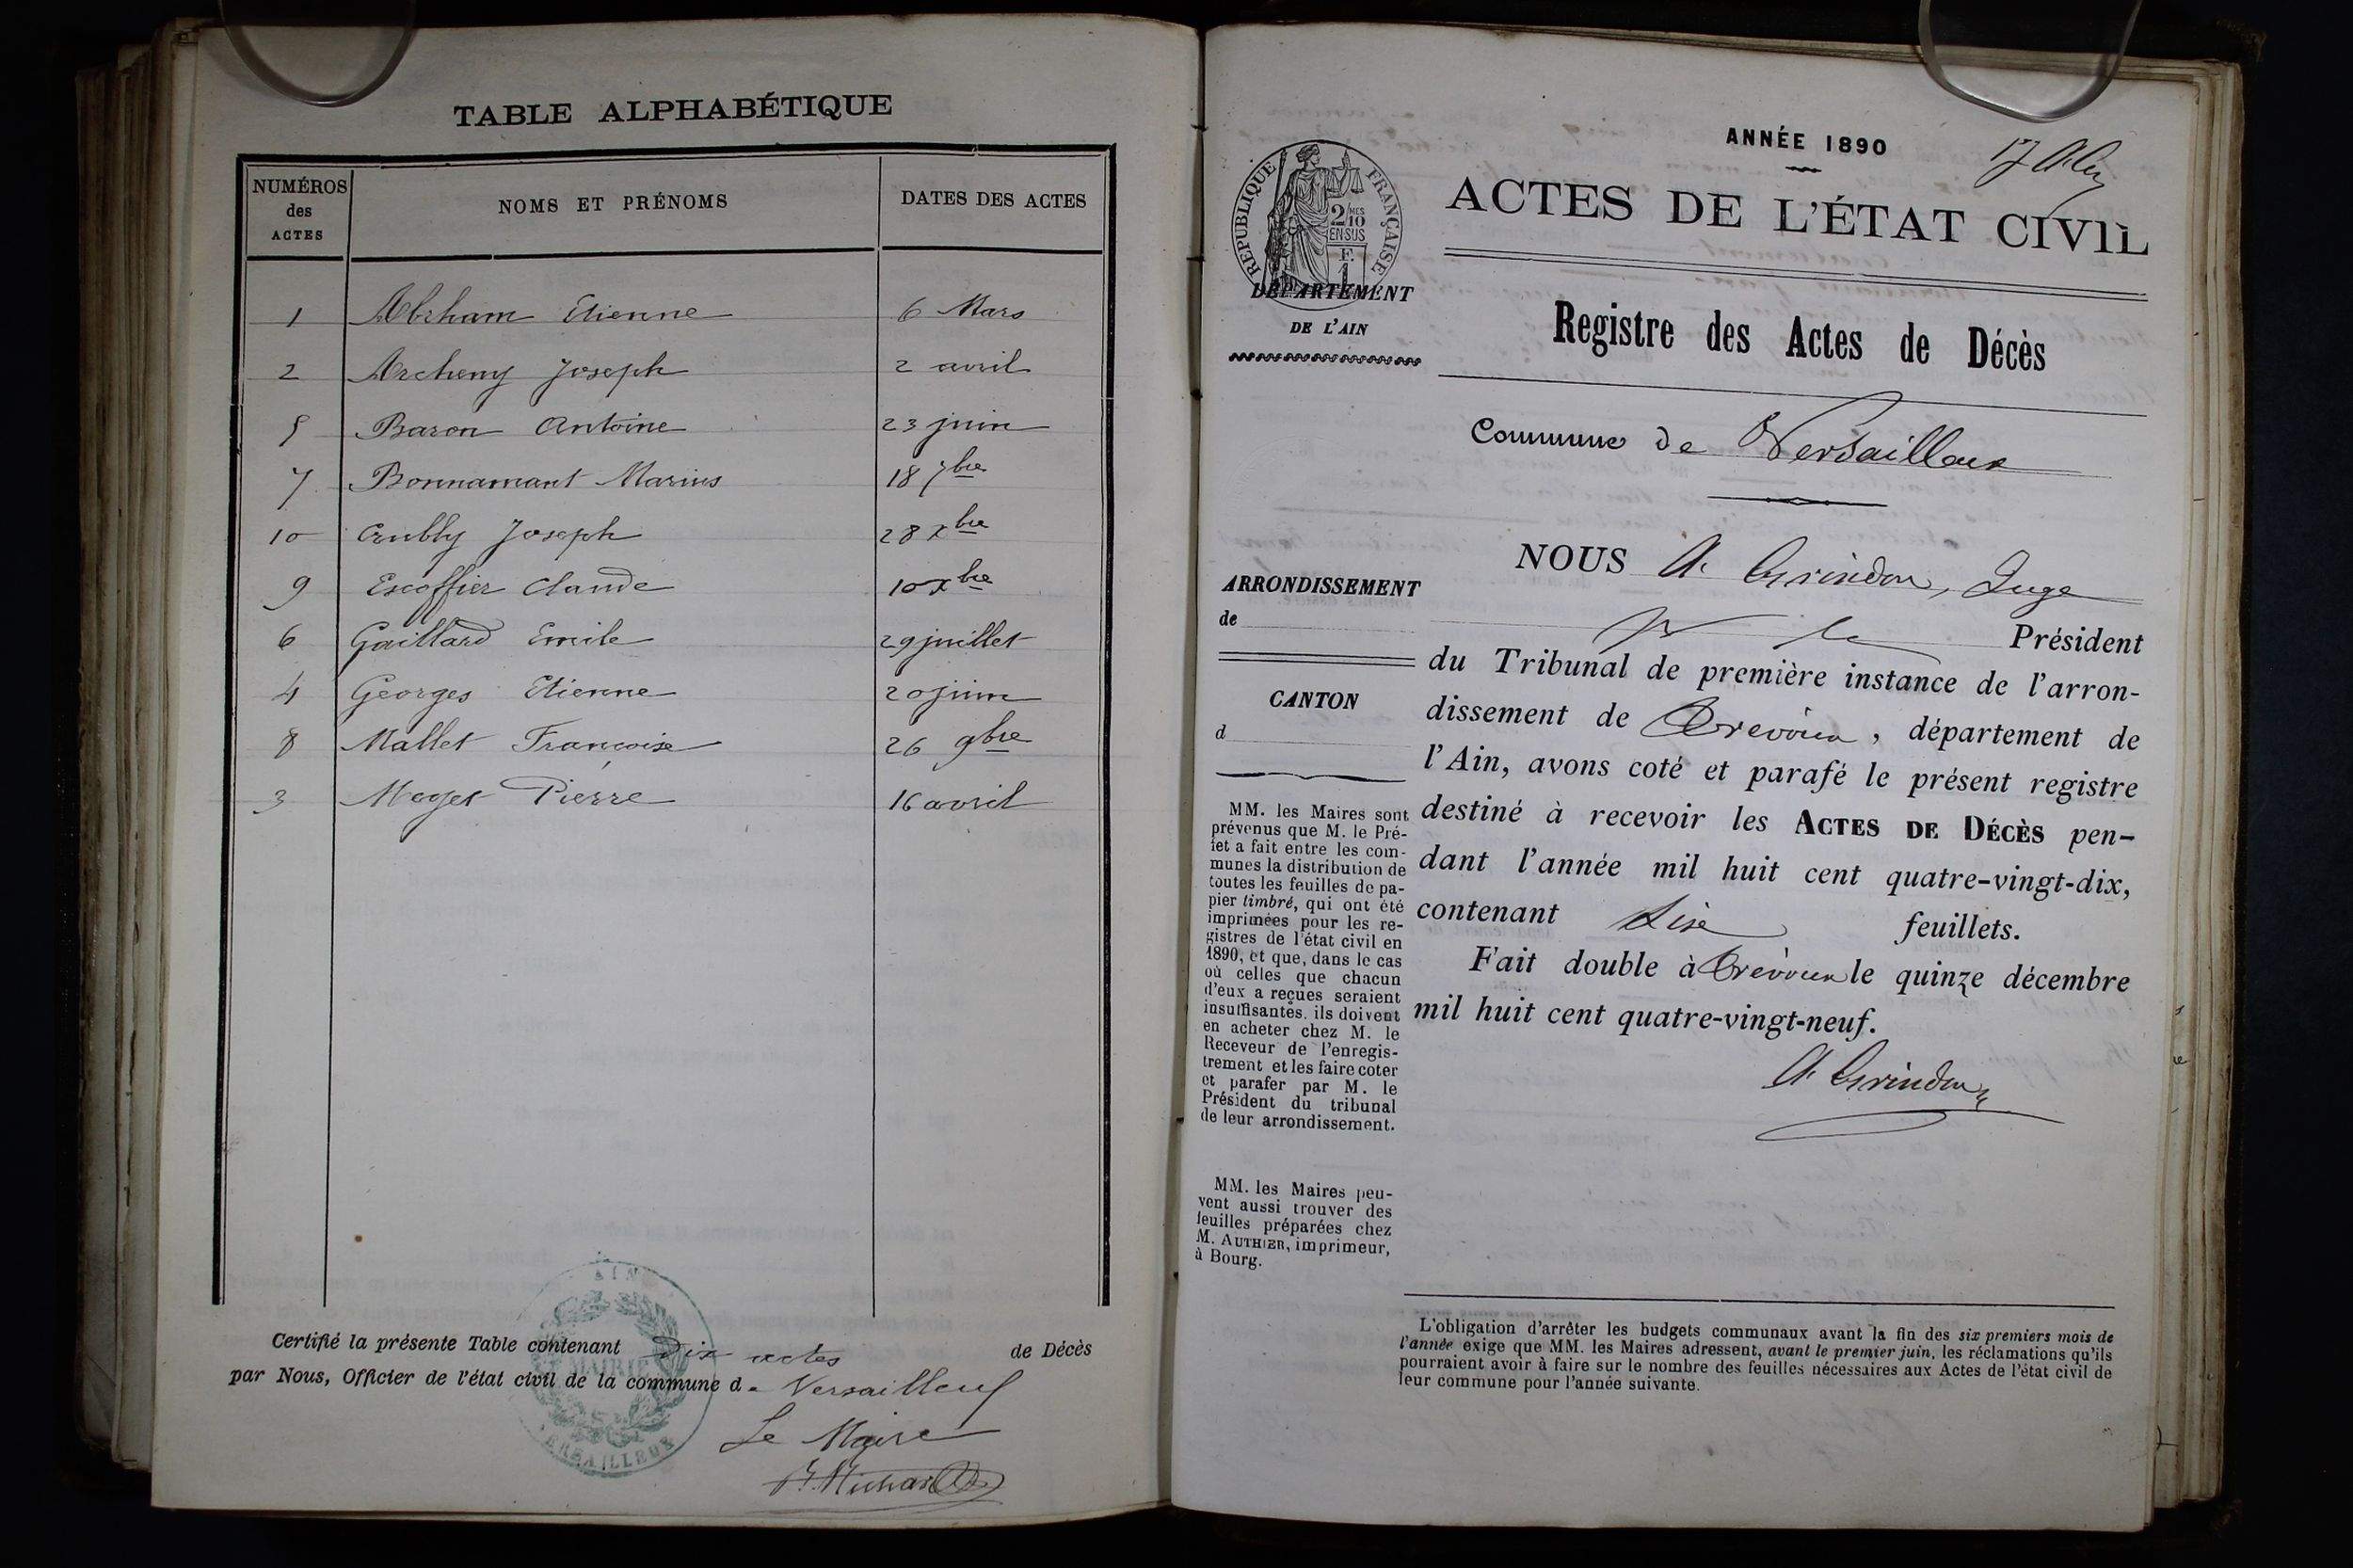 TABLE ALPHABÉTIQUE
NUMÉROS des ACTES NOMS ET PRÉNOMS DATES DES ACTES
1 Abrham Etienne 6 Mars
2 Archeny Joseph 2 avril
5 Baron Antoine 23 juin
7 Bonnamant Marius 18 7bre
10 Crubly Joseph 28 xbre
9 Escoffier Claude 10 xbre
6 Gaillard Emile 29 juillet
4 Georges Etienne 20 juin
8 Mallet Françoise 26 9bre
3 Moget Pierre 16 avril
Certifié la présente Table contenant Dix actes de Décès
par Nous, Officier de l'état civil de la commune de Versailleux
Le Maire
AIN
MAIRIE
VERSAILLEUX
ANNÉE 1890
ACTES DE L'ÉTAT CIVIL
RÉPUBLIQUE FRANÇAISE
2/10 MES
EN SUS
F.
1
DÉPARTEMENT
DE L'AIN
Registre des Actes de Décès
Commune de Versailleux
NOUS A. Grindon, Juge
Président
du Tribunal de première instance de l'arron-
dissement de Trévoux, département de
l'Ain, avons coté et parafé le présent registre
destiné à recevoir les ACTES DE DÉCÈS pen-
dant l'année mil huit cent quatre-vingt-dix,
contenant six feuillets.
Fait double à Trévoux le quinze décembre
mil huit cent quatre-vingt-neuf.
A. Grindon
ARRONDISSEMENT
de
CANTON
d
MM. les Maires sont
prévenus que M. le Pré-
fet a fait entre les com-
munes la distribution de
toutes les feuilles de pa-
pier timbré, qui ont été
imprimées pour les re-
gistres de l'état civil en
1890, et que, dans le cas
où celles que chacun
d'eux a reçues seraient
insuffisantes, ils doivent
en acheter chez M. le
Receveur de l'enregis-
trement et les faire coter
et parafer par M. le
Président du tribunal
de leur arrondissement.
MM. les Maires peu-
vent aussi trouver des
feuilles préparées chez
M. AUTHIER, imprimeur,
à Bourg.
L'obligation d'arrêter les budgets communaux avant la fin des six premiers mois de
l'année exige que MM. les Maires adressent, avant le premier juin, les réclamations qu'ils
pourraient avoir à faire sur le nombre des feuilles nécessaires aux Actes de l'état civil de
leur commune pour l'année suivante.